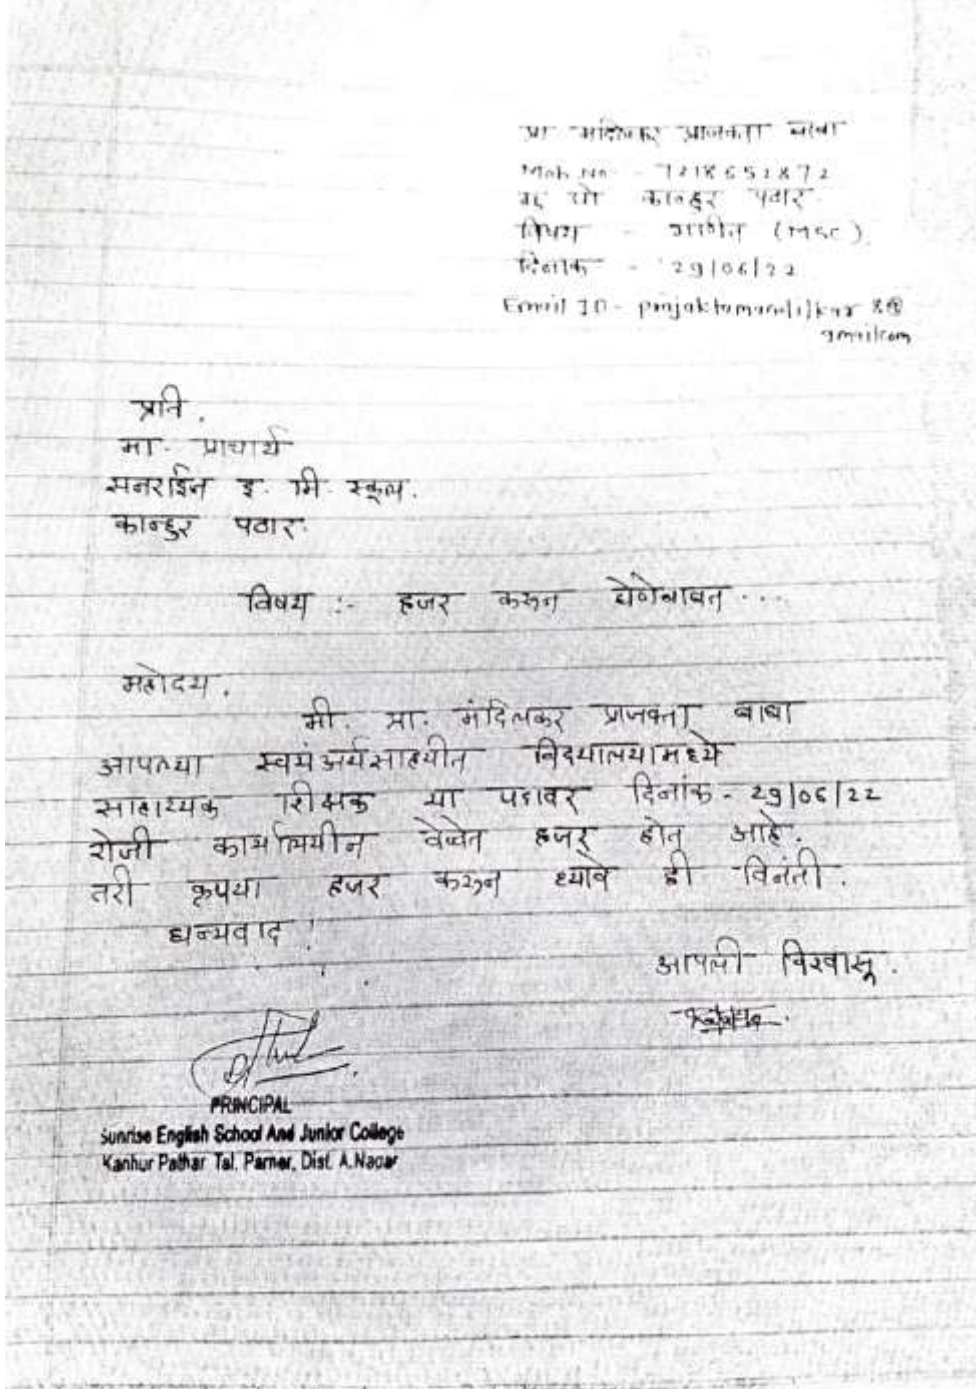 प्रा मंदिलकर प्राजक्ता बाबा
Mob No - 7218652872
मु पो कान्हुर पठार
विषय - गणित (MSC)
दिनांक - 29/06/22
Email ID - prajaktamandilkar
gmailcom
प्रति,
मा. प्राचार्य
सनराईज इ. मि. स्कूल.
कान्हुर पठार.
विषय :- हजर करून घेणेबाबत ...
महोदय,
मी. प्रा. मंदिलकर प्राजक्ता बाबा
आपल्या स्वयंअर्थसाहयीत विदयालयामध्ये
साहाय्यक शिक्षक या पदावर दिनांक - 29/06/22
रोजी कार्यालयीन वेळेत हजर होत आहे.
तरी कृपया हजर करून घ्यावे ही विनंती.
धन्यवाद !
आपली विश्वासू.
PRINCIPAL
Sunrise English School And Junior College
Kanhur Pathar Tal. Parner, Dist. A.Nagar